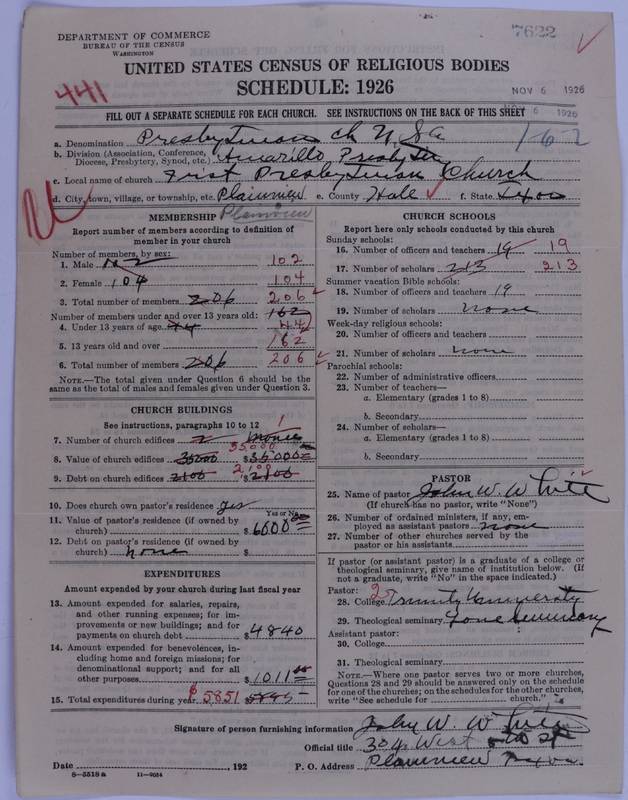 7622
DEPARTMENT OF COMMERCE
BUREAU OF THE CENSUS
WASHINGTON
UNITED STATES CENSUS OF RELIGIOUS BODIES
SCHEDULE: 1926
441
NOV 6 1926
FILL OUT A SEPARATE SCHEDULE FOR EACH CHURCH. SEE INSTRUCTIONS ON THE BACK OF THIS SHEET
NOV 6 1926
162
a. Denomination Presbyterian ch U, S a
b. Division (Association, Conference, Diocese, Presbytery, Synod, etc.) Amarillo Presbytery
c. Local name of church First Presbyterian Church
d. City, town, village, or township, etc. Plainview e. County Hale f. State Texas
Plainview
MEMBERSHIP
Report number of members according to definition of member in your church
Number of members, by sex:
1. Male 102
2. Female 104 104
3. Total number of members 206 206
Number of members under and over 13 years old: 162
4. Under 13 years of age 44 44
5. 13 years old and over 162
6. Total number of members 206 206
NOTE.—The total given under Question 6 should be the same as the total of males and females given under Question 3.
CHURCH BUILDINGS
See instructions, paragraphs 10 to 12
1
7. Number of church edifices
35000
8. Value of church edifices 35000 $35000
2100
9. Debt on church edifices 2100 $2100
10. Does church own pastor's residence? yes
Yes or No
11. Value of pastor's residence (if owned by church) $6000
12. Debt on pastor's residence (if owned by church) none $
EXPENDITURES
Amount expended by your church during last fiscal year
13. Amount expended for salaries, repairs, and other running expenses; for improvements or new buildings; and for payments on church debt $4840
14. Amount expended for benevolences, including home and foreign missions; for denominational support; and for all other purposes $1011
15. Total expenditures during year $5851
CHURCH SCHOOLS
Report here only schools conducted by this church
Sunday schools:
16. Number of officers and teachers 19 19
17. Number of scholars 213 213
Summer vacation Bible schools:
18. Number of officers and teachers 19
19. Number of scholars none
Week-day religious schools:
20. Number of officers and teachers
21. Number of scholars none
Parochial schools:
22. Number of administrative officers
23. Number of teachers—
a. Elementary (grades 1 to 8)
b. Secondary
24. Number of scholars—
a. Elementary (grades 1 to 8)
b. Secondary
PASTOR
25. Name of pastor John W. White
(If church has no pastor, write "None")
26. Number of ordained ministers, if any, employed as assistant pastors none
27. Number of other churches served by the pastor or his assistants
If pastor (or assistant pastor) is a graduate of a college or theological seminary, give name of institution below. (If not a graduate, write "No" in the space indicated.)
Pastor: 2
28. College Trinity University
29. Theological seminary Lane Seminary
Assistant pastor:
30. College
31. Theological seminary
NOTE.—Where one pastor serves two or more churches, Questions 28 and 29 should be answered only on the schedule for one of the churches; on the schedules for the other churches, write "See schedule for church."
Signature of person furnishing information John W. White
Official title 304 West st
Date , 192 P. O. Address Plainview Texas
8—5518 a 11—9054